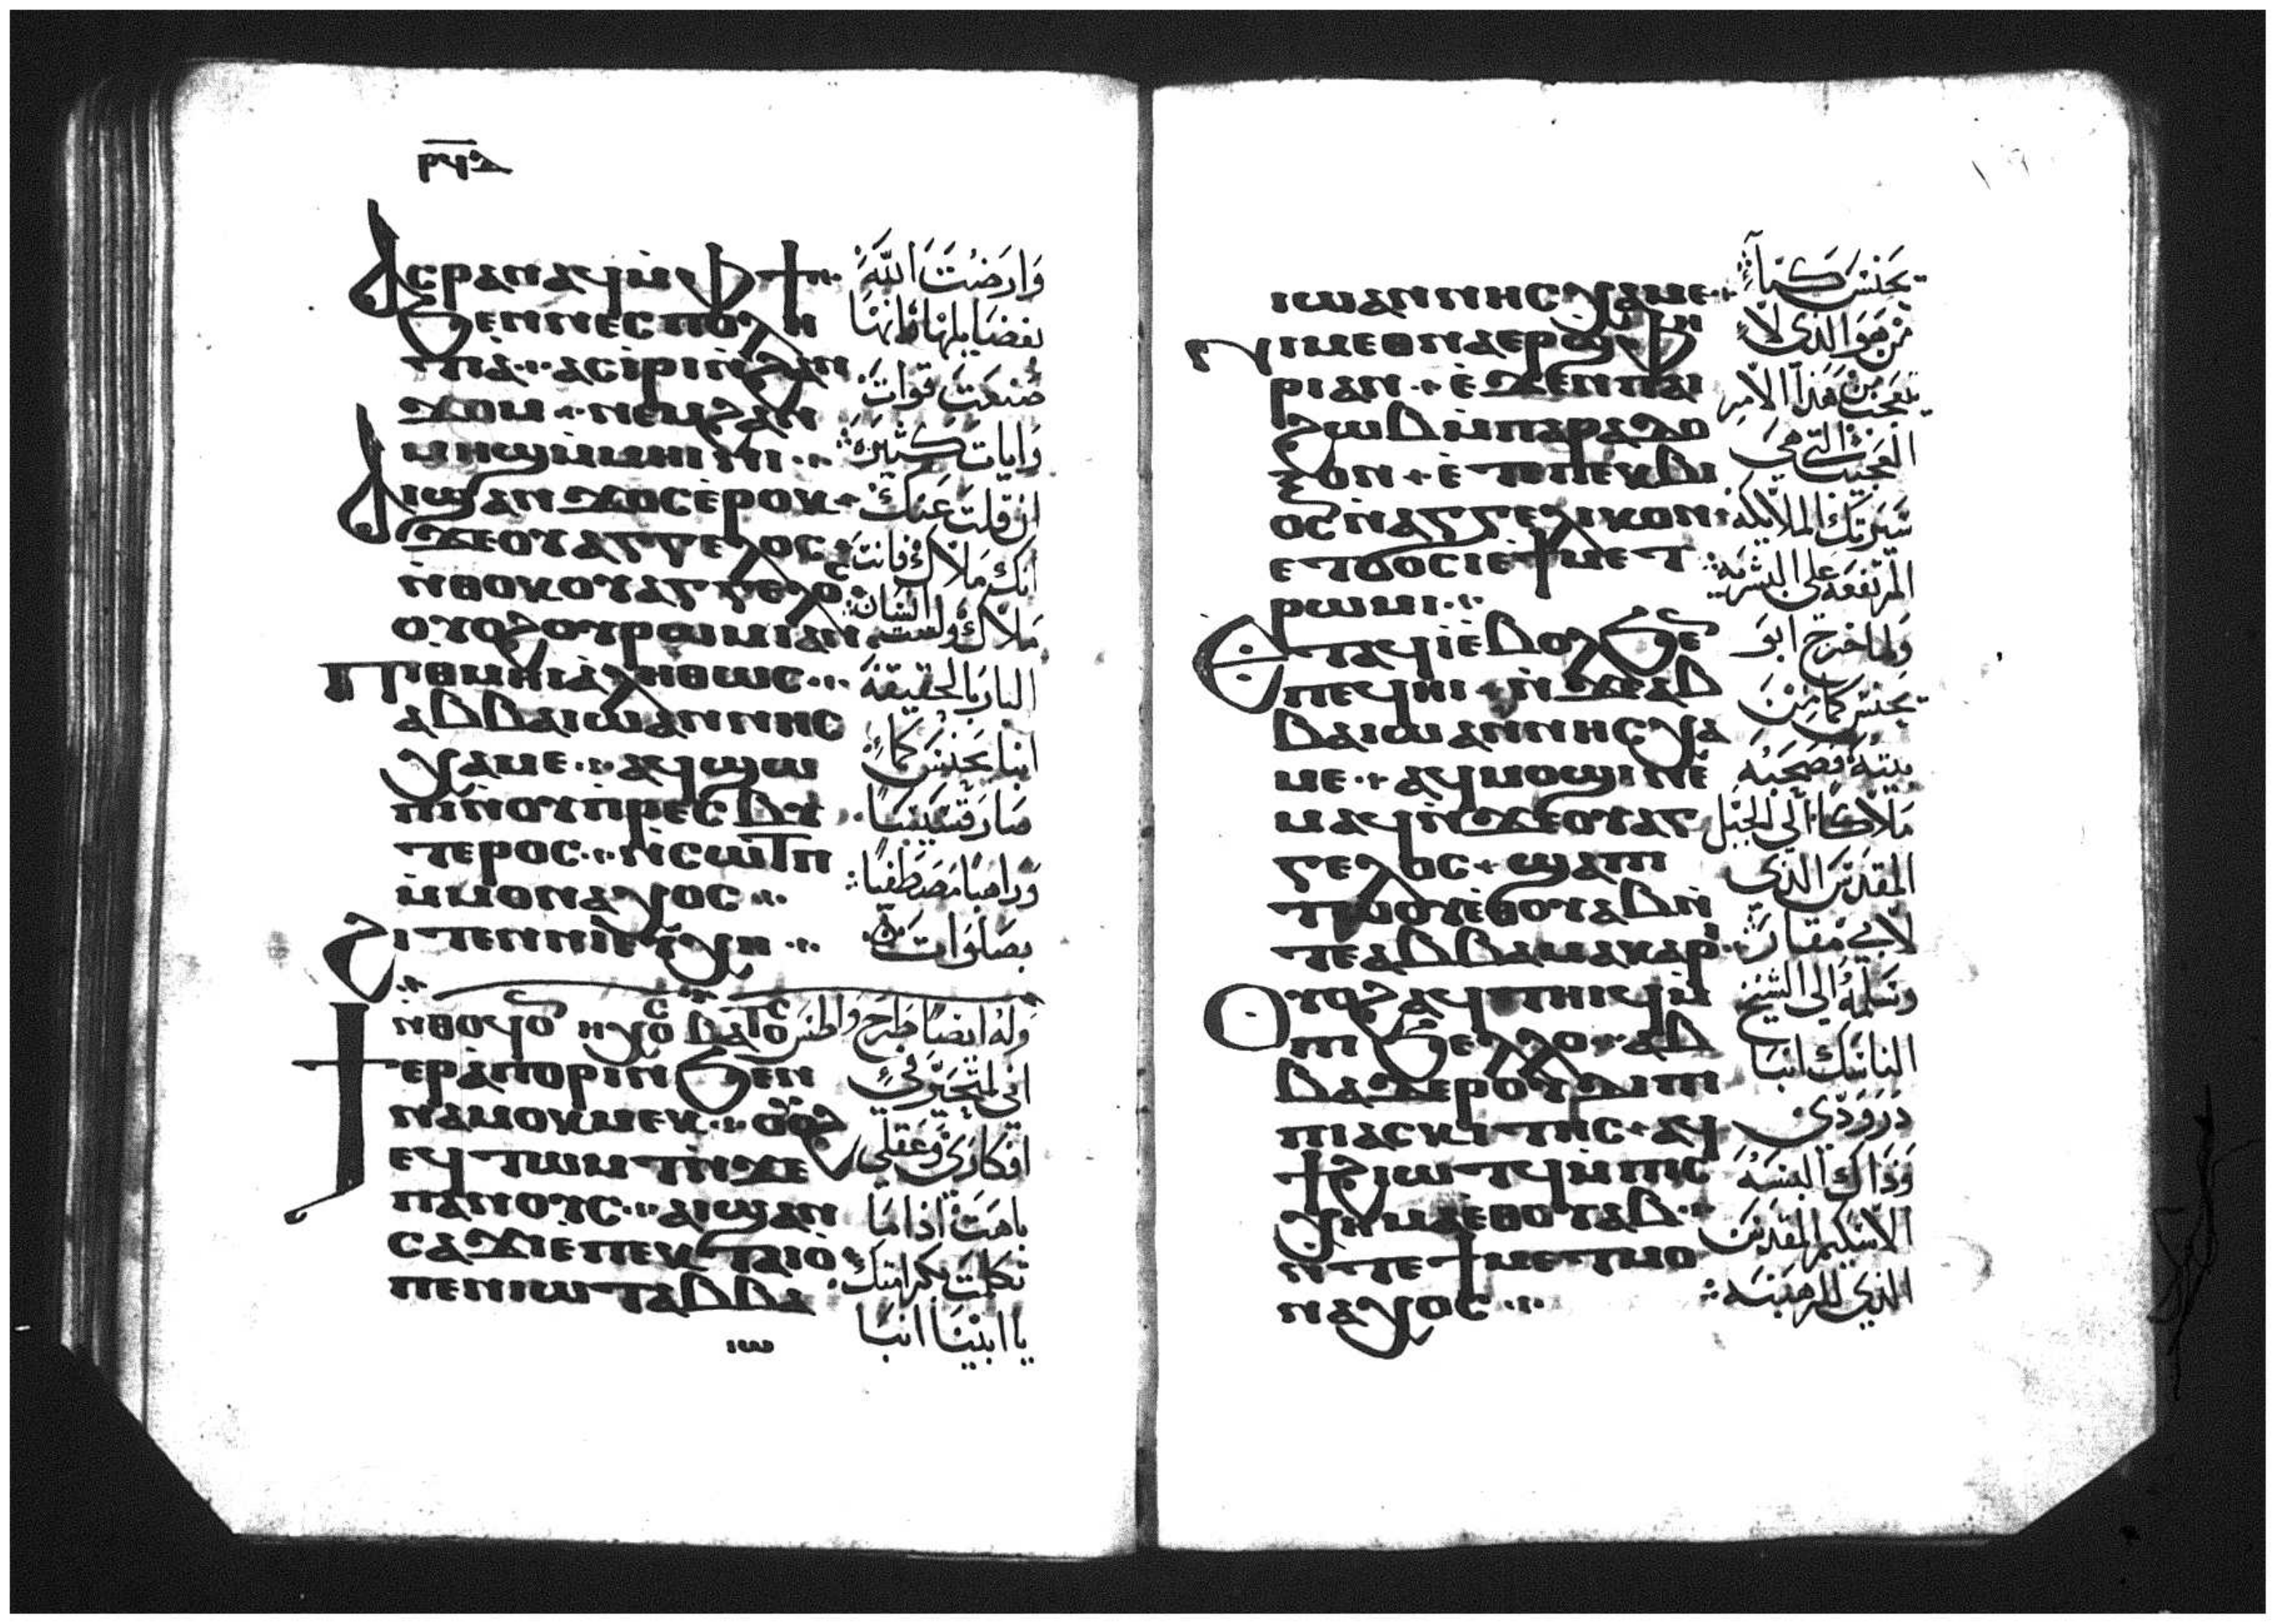 ⲣϥⲍ
ⲁⲥⲣⲁⲛⲁϥ ⲙ̀ⲫϯ
ϧⲉⲛ ⲛⲉⲥⲡⲟⲗⲏ
ⲧⲓⲁ ⲁⲥⲓ̀ⲣⲓ ⲛ̀ϩⲁⲛ
ϫⲟⲙ ⲛⲉⲙ ϩⲁⲛ
ⲙⲏϣ ⲙ̀ⲙⲏⲓⲛⲓ
ⲁⲓϣⲁⲛϫⲟⲥ ⲉ̀ⲣⲟⲕ
ϫⲉ ⲟⲩⲁⲅⲅⲉⲗⲟⲥ
ⲛ̀ⲑⲟⲕ ⲟⲩⲁⲅⲅⲉⲗⲟⲥ
ⲟⲩⲟϩ ⲟⲩⲣⲱⲙⲓ ⲁⲛ
ⲡⲓⲑⲙⲏⲓ ⲁ̀ⲗⲏⲑⲱⲥ
ⲁⲃⲃⲁ ⲓⲱⲁⲛⲛⲏⲥ
ⲭⲁⲙⲉ ⲁϥϣⲱ
ⲡⲓ ⲛ̀ⲟⲩⲡ̀ⲣⲉⲥⲃⲩ
ⲧⲉⲣⲟⲥ ⲛ̀ⲥⲱⲧⲡ
ⲙ̀ⲙⲟⲛⲁⲭⲟⲥ
ϩⲓⲧⲉⲛ ⲛⲓⲉⲩⲭⲏ
ⲛ̀ⲑⲟϥ ⲟⲛ ⲏⲭⲟⲥ ⲃⲁⲧⲟⲥ وله ايضًا طرح واطس
ϯⲉⲣⲁ̀ⲡⲟⲣⲓⲛ ϧⲉⲛ
ⲛⲁⲙⲟⲕⲙⲉⲕ ⲟⲩⲟϩ
ⲉϥⲧⲱⲙⲧ ⲛ̀ϫⲉ
ⲡⲁⲛⲟⲩⲥ ⲁⲓϣⲁⲛ
ⲥⲁϫⲓ ⲉ̀ⲡⲉⲕⲧⲁⲓⲟ̀
ⲡⲉⲛⲓⲱⲧ ⲁⲃⲃⲁ
ⲓⲱ
وَارضَت اللّه
بفضايلها لانها
صَنعَت قوات
وَايات كثيرَه
ان قلت عَنك
انك مَلاك فانت
مَلاك ولست انسَان
البار بالحقيقه
انبا يحنس كما
صَار قسّيسًا
وَراهبًا مصطفيًا
بصَلوَات
انى لمتحيّر في
افكارى وَعقلي
باهت اذا ما
تكلمت بكرامتك
يا ابينا انبا
ⲓⲱⲁⲛⲛⲏⲥ ⲭⲁⲙⲉ
ⲛⲓⲙ ⲉⲑⲛⲁⲉⲣϣⲫⲏ
ⲣⲓ ⲁⲛ ⲉ̀ϫⲉⲛ ⲡⲁⲓ
ϩⲱⲃ ⲙ̀ⲡⲁⲣⲁⲇⲟ
ⲝⲟⲛ ⲉ̀ⲧⲉ ⲡⲉⲕⲃⲓ
ⲟⲥ ⲛ̀ⲁⲅⲅⲉⲗⲓⲕⲟⲛ
ⲉⲧϭⲟⲥⲓ ⲉ̀ϯⲙⲉⲧ
ⲣⲱⲙⲓ
ⲉⲧⲁϥⲓ̀ ⲉ̀ⲃⲟⲗ ϧⲉⲛ
ⲡⲉϥⲏⲓ ⲛ̀ϫⲉ ⲁⲃ
ⲃⲁ ⲓⲱⲁⲛⲛⲏⲥ ⲭⲁ
ⲙⲉ ⲁϥⲙⲟϣⲓ ⲛⲉ
ⲙⲁϥ ⲛ̀ϫⲉ ⲟⲩⲁⲅ
ⲅⲉⲗⲟⲥ ϣⲁ ⲡⲓ
ⲧⲱⲟⲩ ⲉ̀ⲑⲟⲩⲁⲃ ⲛ̀
ⲧⲉ ⲁⲃⲃⲁ ⲙⲁⲕⲁⲣⲓ
ⲟⲩⲟϩ ⲁϥⲧⲏⲓϥ ⲙ̀
ⲡⲓϧⲉⲗⲗⲟ ⲁⲃ
ⲃⲁ ⲇⲉⲣⲟⲩⲇⲓ ⲡⲓ
ⲡⲓⲁⲥⲕⲓⲧⲏⲥ ⲁϥ
ϯϩⲓⲱⲧϥ ⲙ̀ⲡⲓⲥ
ⲭⲏⲙⲁ ⲉⲑⲟⲩⲁⲃ
ⲛ̀ⲧⲉ ϯⲙⲉⲧⲙⲟ
ⲛⲁⲭⲟⲥ
يحنس كما
مَن هوَ الذى لا
يتعجب من هَذا الامر
العجيب التى هي
سَيرتك الملايكيه
المرتفعه على البشريه
وَلما خرج ابو
يحنس كما من
بيته وصحبه
مَلاكًا الى الجبَل
المقدس الذى
لابي مقار
وسَلمه الى الشيخ
الناسك انبا
درودي
وَذاك البسَه
الاسكيم المقدس
الذى للرهبَنه